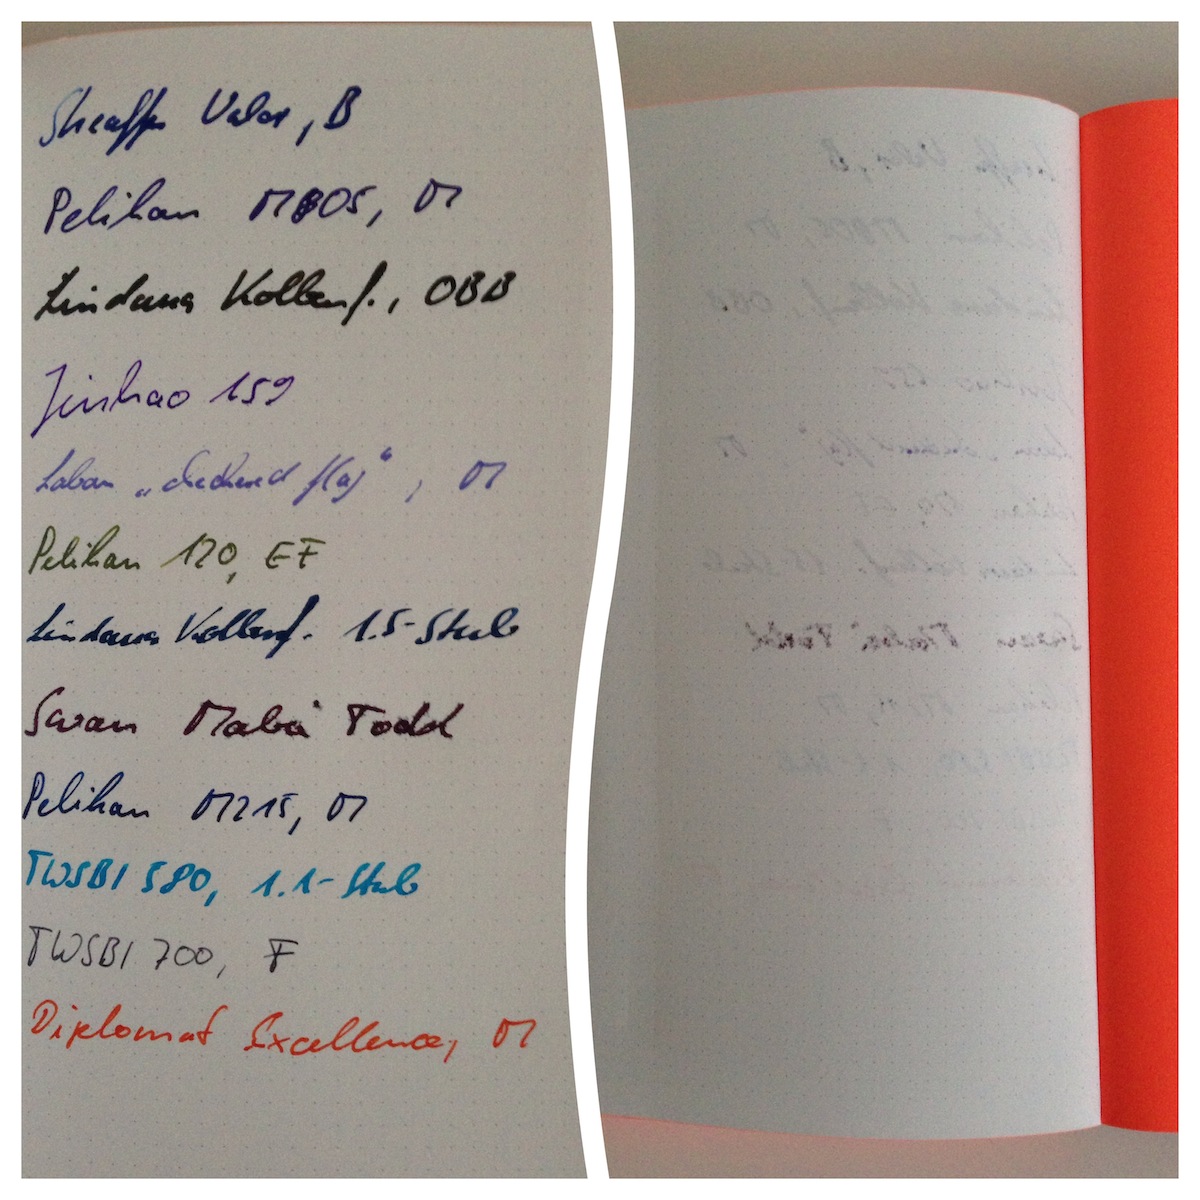 Sheaffer Valor, B
Pelikan M805, M
Lindauer Kolbenf., OBB
Jinhao 159
Laban „checkered flag“, M
Pelikan 120, EF
Lindauer Kolbenf. 1.5-Stub
Swan Mabie Todd
Pelikan M215, M
TWSBI 580, 1.1-Stub
TWSBI 700, F
Diplomat Excellence, M